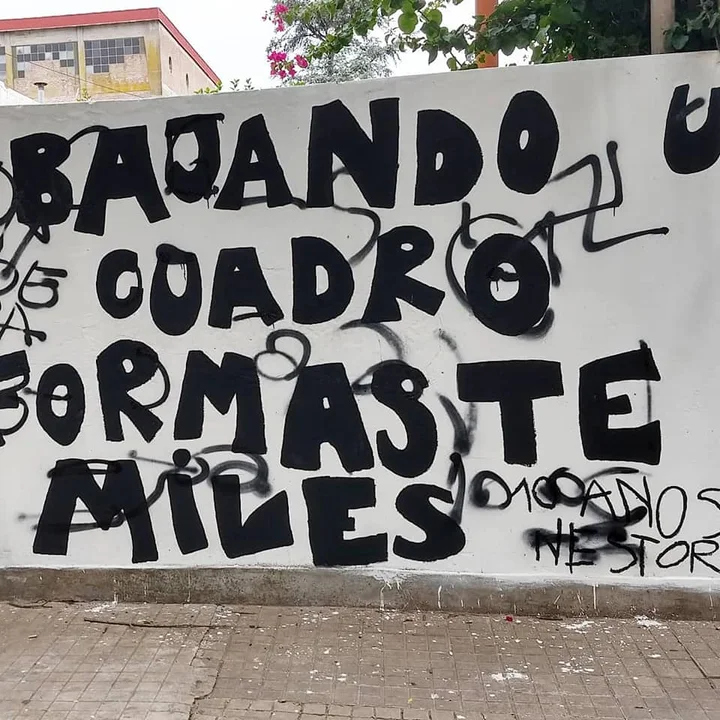 BAJANDO U
CUADRO
FORMASTE
MILES
ANOS
NESTOR